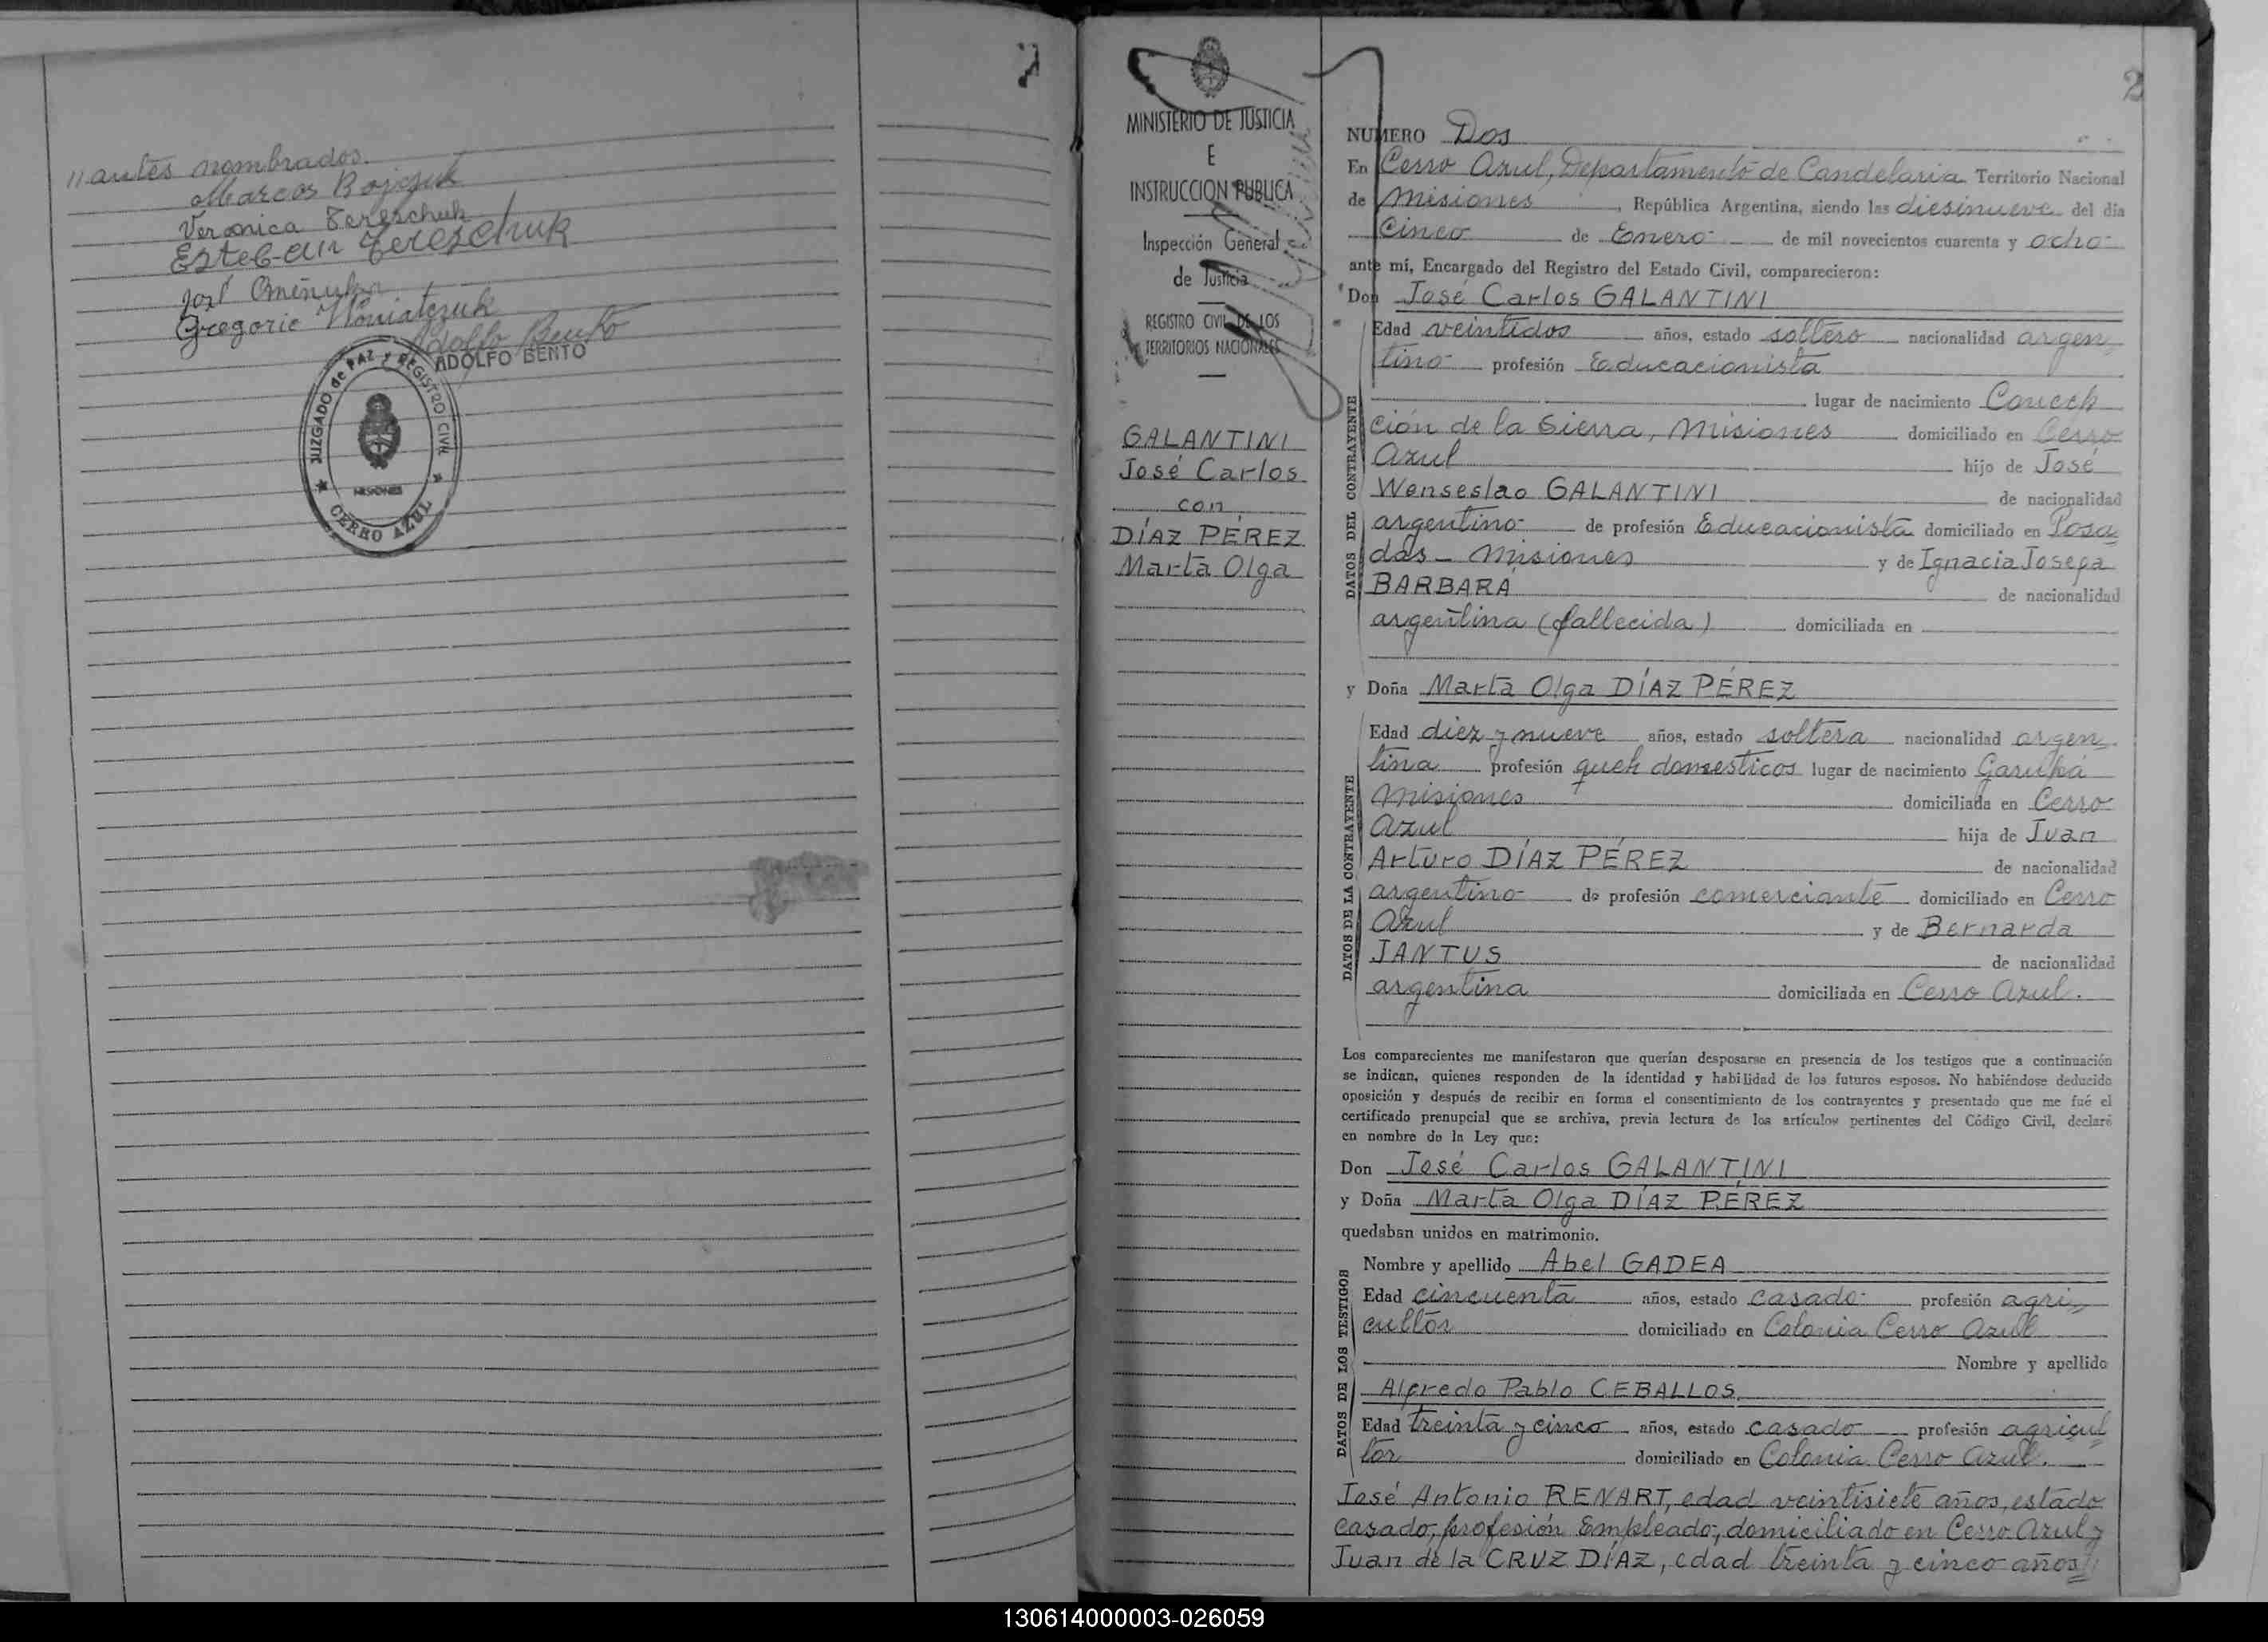 // antes nombrados.
Marcos Bojczuk
Veronica Tereschuk
Esteban Tereszchuk
José
Gregorio
Adolfo Bento
ADOLFO BENTO
JUZGADO de PAZ Y REGISTRO CIVIL
MISIONES
CERRO AZUL
MINISTERIO DE JUSTICIA
E
INSTRUCCION PUBLICA
Inspección General
de Justicia
REGISTRO CIVIL DE LOS
TERRITORIOS NACIONALES
GALANTINI
José Carlos
con
DÍAZ PÉREZ
Marta Olga
2
NUMERO Dos
En Cerro Azul, Departamento de Candelaria Territorio Nacional
de Misiones, República Argentina, siendo las diesinueve del día
Cinco de Enero de mil novecientos cuarenta y ocho
ante mí, Encargado del Registro del Estado Civil, comparecieron:
Don José Carlos GALANTINI
DATOS DEL CONTRAYENTE
Edad veintidos años, estado soltero nacionalidad argen
tino profesión Educacionista
lugar de nacimiento
ción de la Sierra, Misiones domiciliado en Cerro
Azul hijo de José
Wenseslao GALANTINI de nacionalidad
argentino de profesión Educacionista domiciliado en Posa
das - Misiones y de Ignacia Josefa
BARBARÁ de nacionalidad
argentina (fallecida) domiciliada en
y Doña Marta Olga DÍAZ PÉREZ
DATOS DE LA CONTRAYENTE
Edad diez y nueve años, estado soltera nacionalidad argen
tina profesión queh domesticos lugar de nacimiento Garupá
Misiones domiciliada en Cerro
Azul hija de Juan
Arturo DÍAZ PÉREZ de nacionalidad
argentino de profesión comerciante domiciliado en Cerro
Azul y de Bernarda
JANTUS de nacionalidad
argentina domiciliada en Cerro Azul.
Los comparecientes me manifestaron que querían desposarse en presencia de los testigos que a continuación
se indican, quienes responden de la identidad y habilidad de los futuros esposos. No habiéndose deducido
oposición y después de recibir en forma el consentimiento de los contrayentes y presentado que me fué el
certificado prenupcial que se archiva, previa lectura de los artículos pertinentes del Código Civil, declaré
en nombre de la Ley que:
Don José Carlos GALANTINI
y Doña Marta Olga DÍAZ PÉREZ
quedaban unidos en matrimonio.
DATOS DE LOS TESTIGOS
Nombre y apellido Abel GADEA
Edad cincuenta años, estado casado profesión agri
cultor domiciliado en Colonia Cerro Azul
Nombre y apellido
Alfredo Pablo CEBALLOS
Edad treinta y cinco años, estado casado profesión agricul
tor domiciliado en Colonia Cerro Azul.
José Antonio RENART, edad veintisiete años, estado
casado, profesión Empleado, domiciliado en Cerro Azul y
Juan de la CRUZ DÍAZ, edad treinta y cinco años //
130614000003-026059